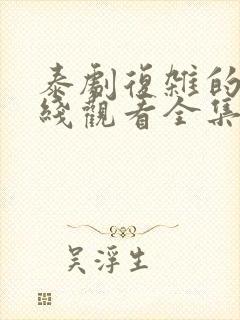 泰劇復雜的
綫觀看全集
吴浮生